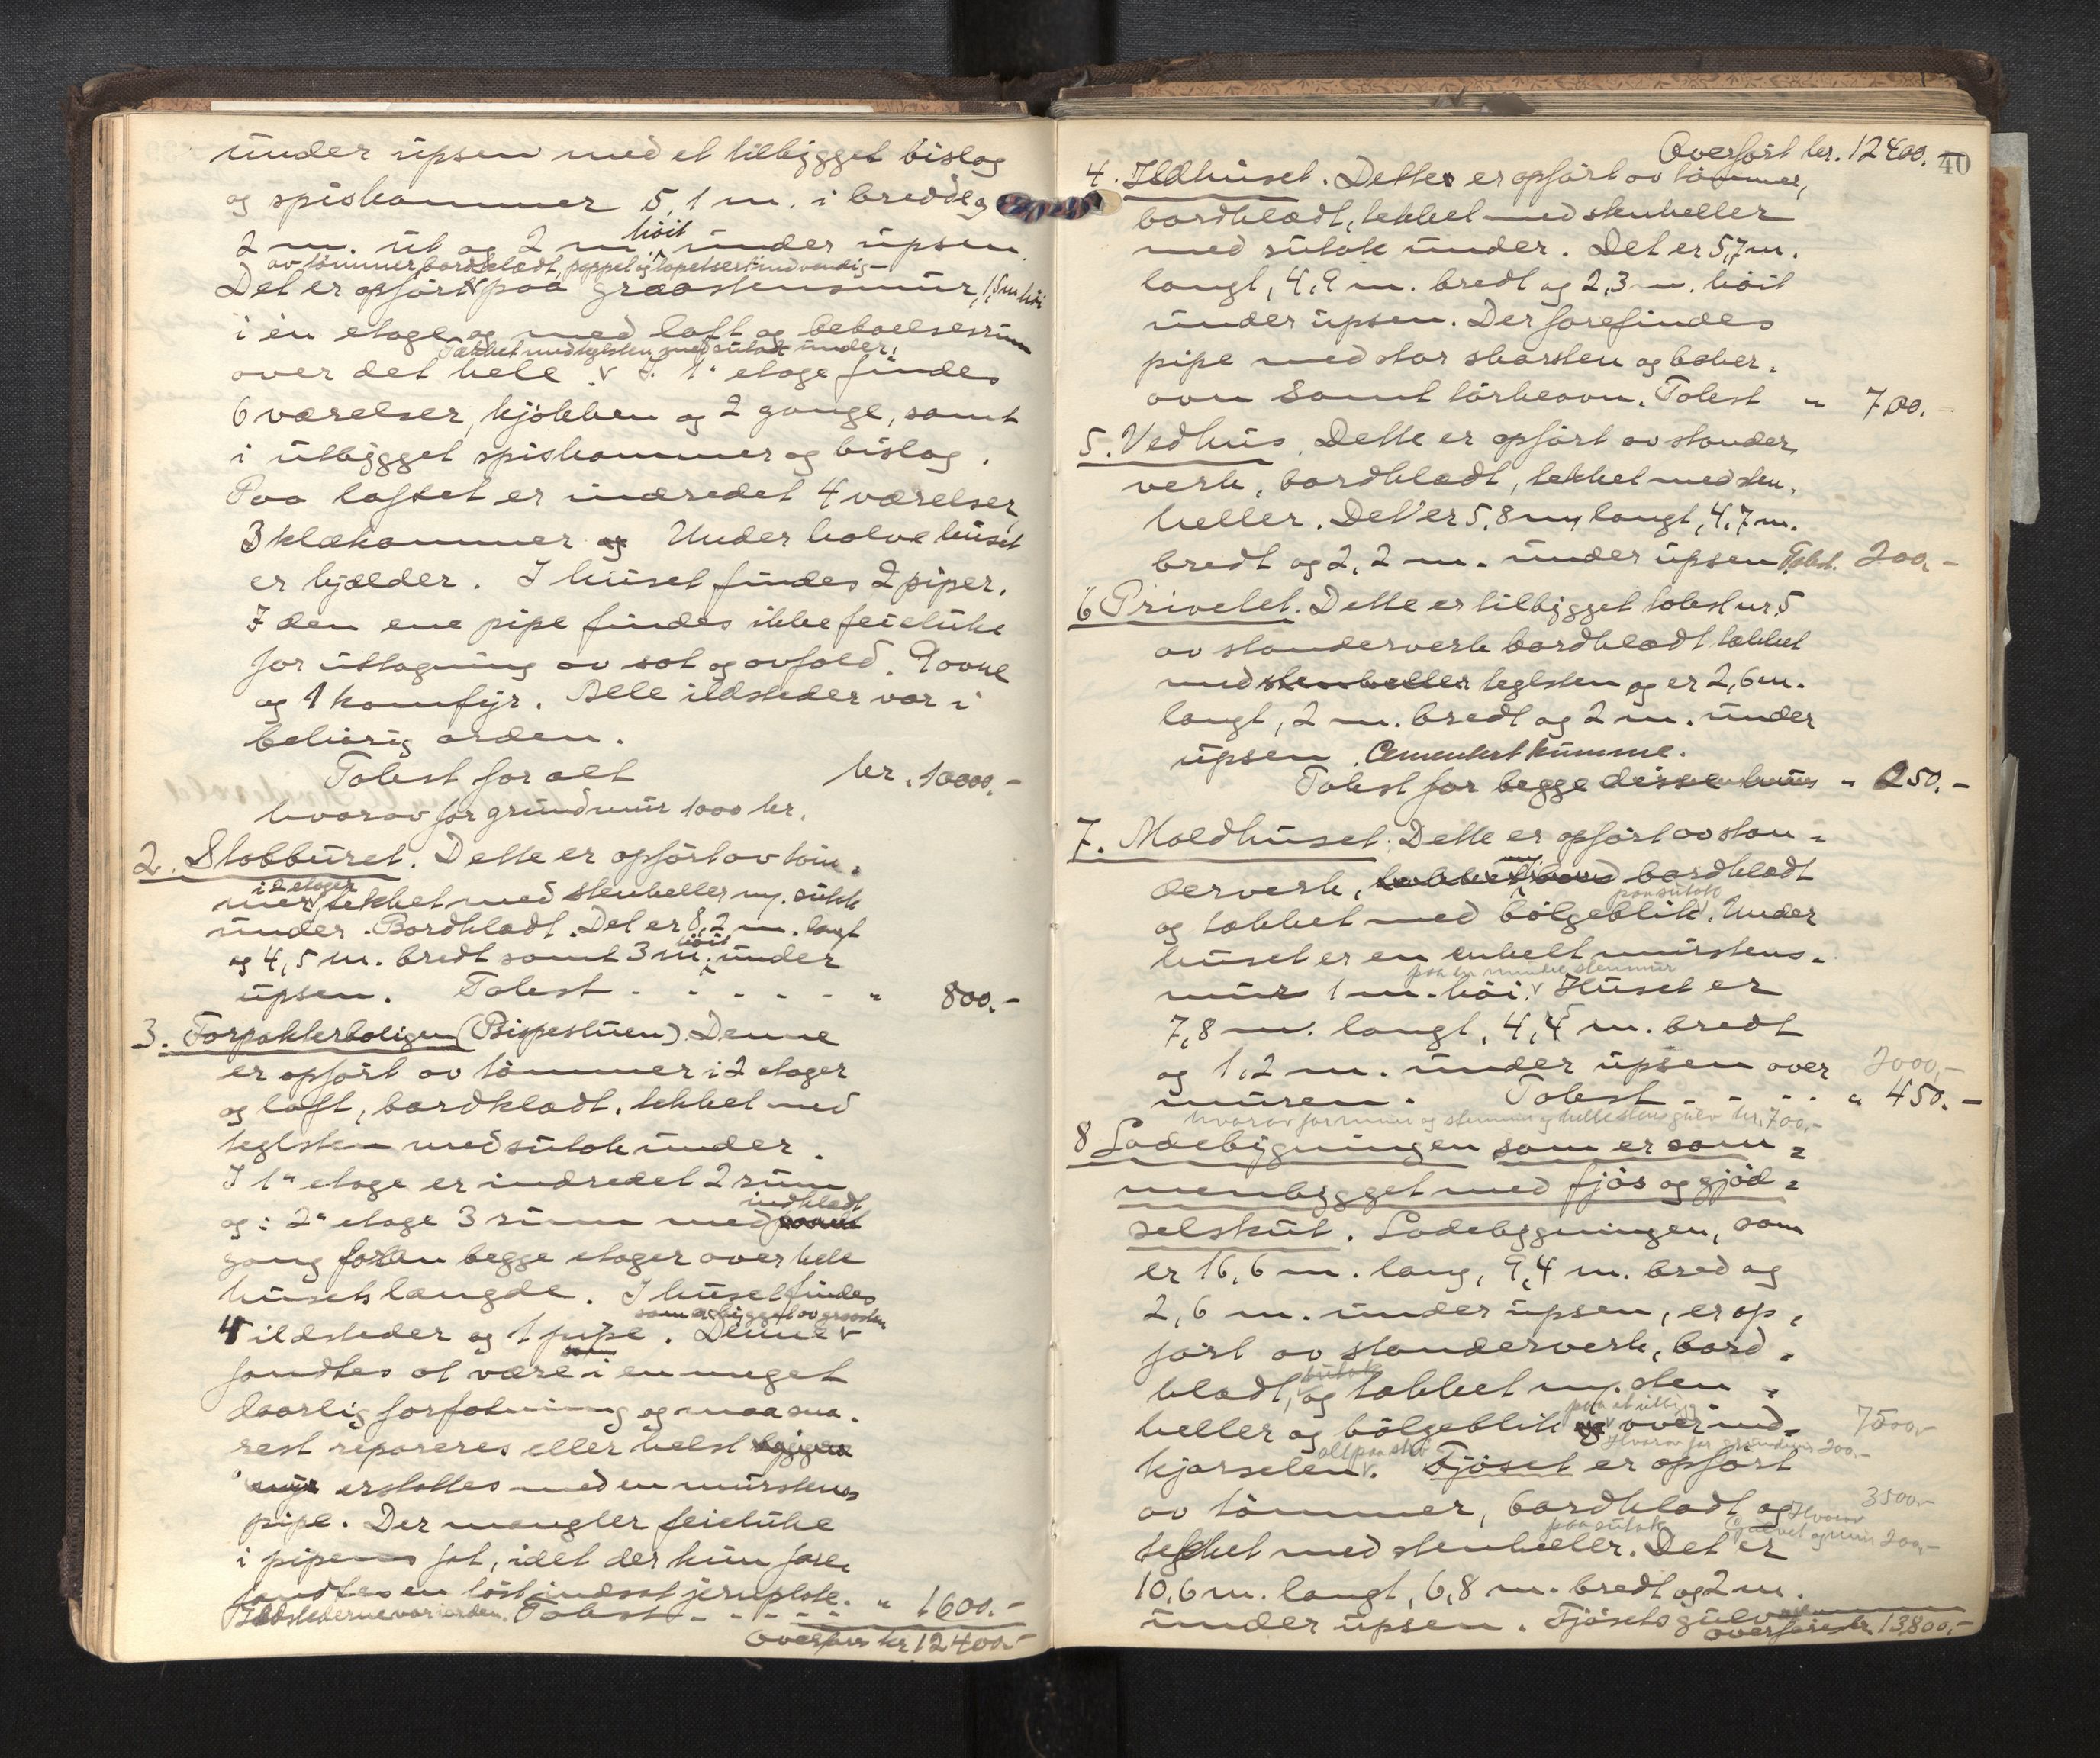 under upsen med et tilbygget bislag
og spiskammer 5,1 m. i bredde og
2 m. ut og 2 m. høit under upsen.
av tømmer, bordklædt, pappet og tapetsert indvendig
Det er opført paa graastensmur, 1,5 m høi
i én etage og med loft og beboelsesrum
Tækket med teglsten med sutak under.
over det hele. I 1ste etage findes
6 værelser, kjøkken og 2 gange, samt
i utbygget spiskammer og bislag.
Paa loftet er indredet 4 værelser,
3 klækammer og Under halve huset
er kjælder. I huset findes 2 piper.
I den ene pipe findes ikke feieluke
for uttagning av sot og avfald. 9 ovne
og 1 komfyr. Alle ildsteder var i
behørig orden.
Takst for alt kr. 10000.-
hvorav for grundmur 1000 kr.
2. Stabburet. Dette er opført av tøm-
i 2 etager
mer, tekket med stenheller m/. sutak
under. Bordklædt. Det er 8,2 m. langt
og 4,5 m. bredt samt 3 m. høit under
upsen. Takst - - - - - " 800.-
3. Forpakterboligen (Bispestuen). Denne
er opført av tømmer i 2 etager
og loft, bordklædt, tekket med
teglsten med sutak under.
I 1ste etage er indredet 2 rum
indklædt
og i 2den etage 3 rum med
gang foran begge etager over hele
husets længde. I huset findes
som er bygget av graasten
4 ildsteder og 1 pipe. Denne
fandtes at være i en meget
daarlig forfatning og maa sna-
rest repareres eller helst
erstattes med en murstens
pipe. Der mangler feieluke
i pipens fot, idet der kun fore-
fandtes en løst indsat jernplate.
Ildstederne var i orden. Takst - - - - " 1600.-
Overføres kr. 12400.-
Overført kr. 12400.-
40
4. Ildhuset. Dette er opført av tømmer,
bordklædt, tekket med stenheller
med sutak under. Det er 5,7 m.
langt, 4,9 m. bredt og 2,3 m. høit
under upsen. Der forefindes
pipe med stor skorsten og baker-
ovn samt tørkeovn. Takst " 700.-
5. Vedhus. Dette er opført av stender
verk, bordklædt, tekket med sten-
heller. Det er 5,8 m. langt, 4,7 m.
bredt og 2,2 m. under upsen Takst. 200.-
6 Privetet. Dette er tilbygget takst nr. 5
av stenderverk bordklædt tækket
med stenheller teglsten og er 2,6 m.
langt, 2 m. bredt og 2 m. under
upsen. Cementert kumme.
Takst for begge disse huus " 250.-
7. Maldhuset. Dette er opført av sten-
derverk, bordklædt
paa sutak
og tækket med bølgeblik. Under
huset er en enkelt murstens-
paa en mindre stenmur
mur 1 m. høi. Huset er
7,8 m. langt, 4,4 m. bredt
og 1,2 m. under upsen over 2000.-
muren. Takst - - - - " 450.-
hvorav for mur og stenmur og hellestens gulv kr. 700.-
8 Ladebygningen som er sam-
menbygget med fjøs og gjød-
selskut. Ladebygningen, som
er 16,6 m. lang, 9,4 m. bred og
2,6 m. under upsen, er op-
ført av stenderverk, bord-
sutak
klædt, og tækket m/. sten-
paa et utbygg
heller og bølgeblik over ind- 7500.-
alt paa sten Hvorav for grundmur 200.-
kjørselen. Fjøset er opført
av tømmer, bordklædt og 3500.-
paa sutak Hvorav
Gulvet og mur 200.-
tekket med stenheller. Det er
10,6 m. langt, 6,8 m. bredt og 2 m.
under upsen. Fjøsets gulv
overføres kr. 13800.-